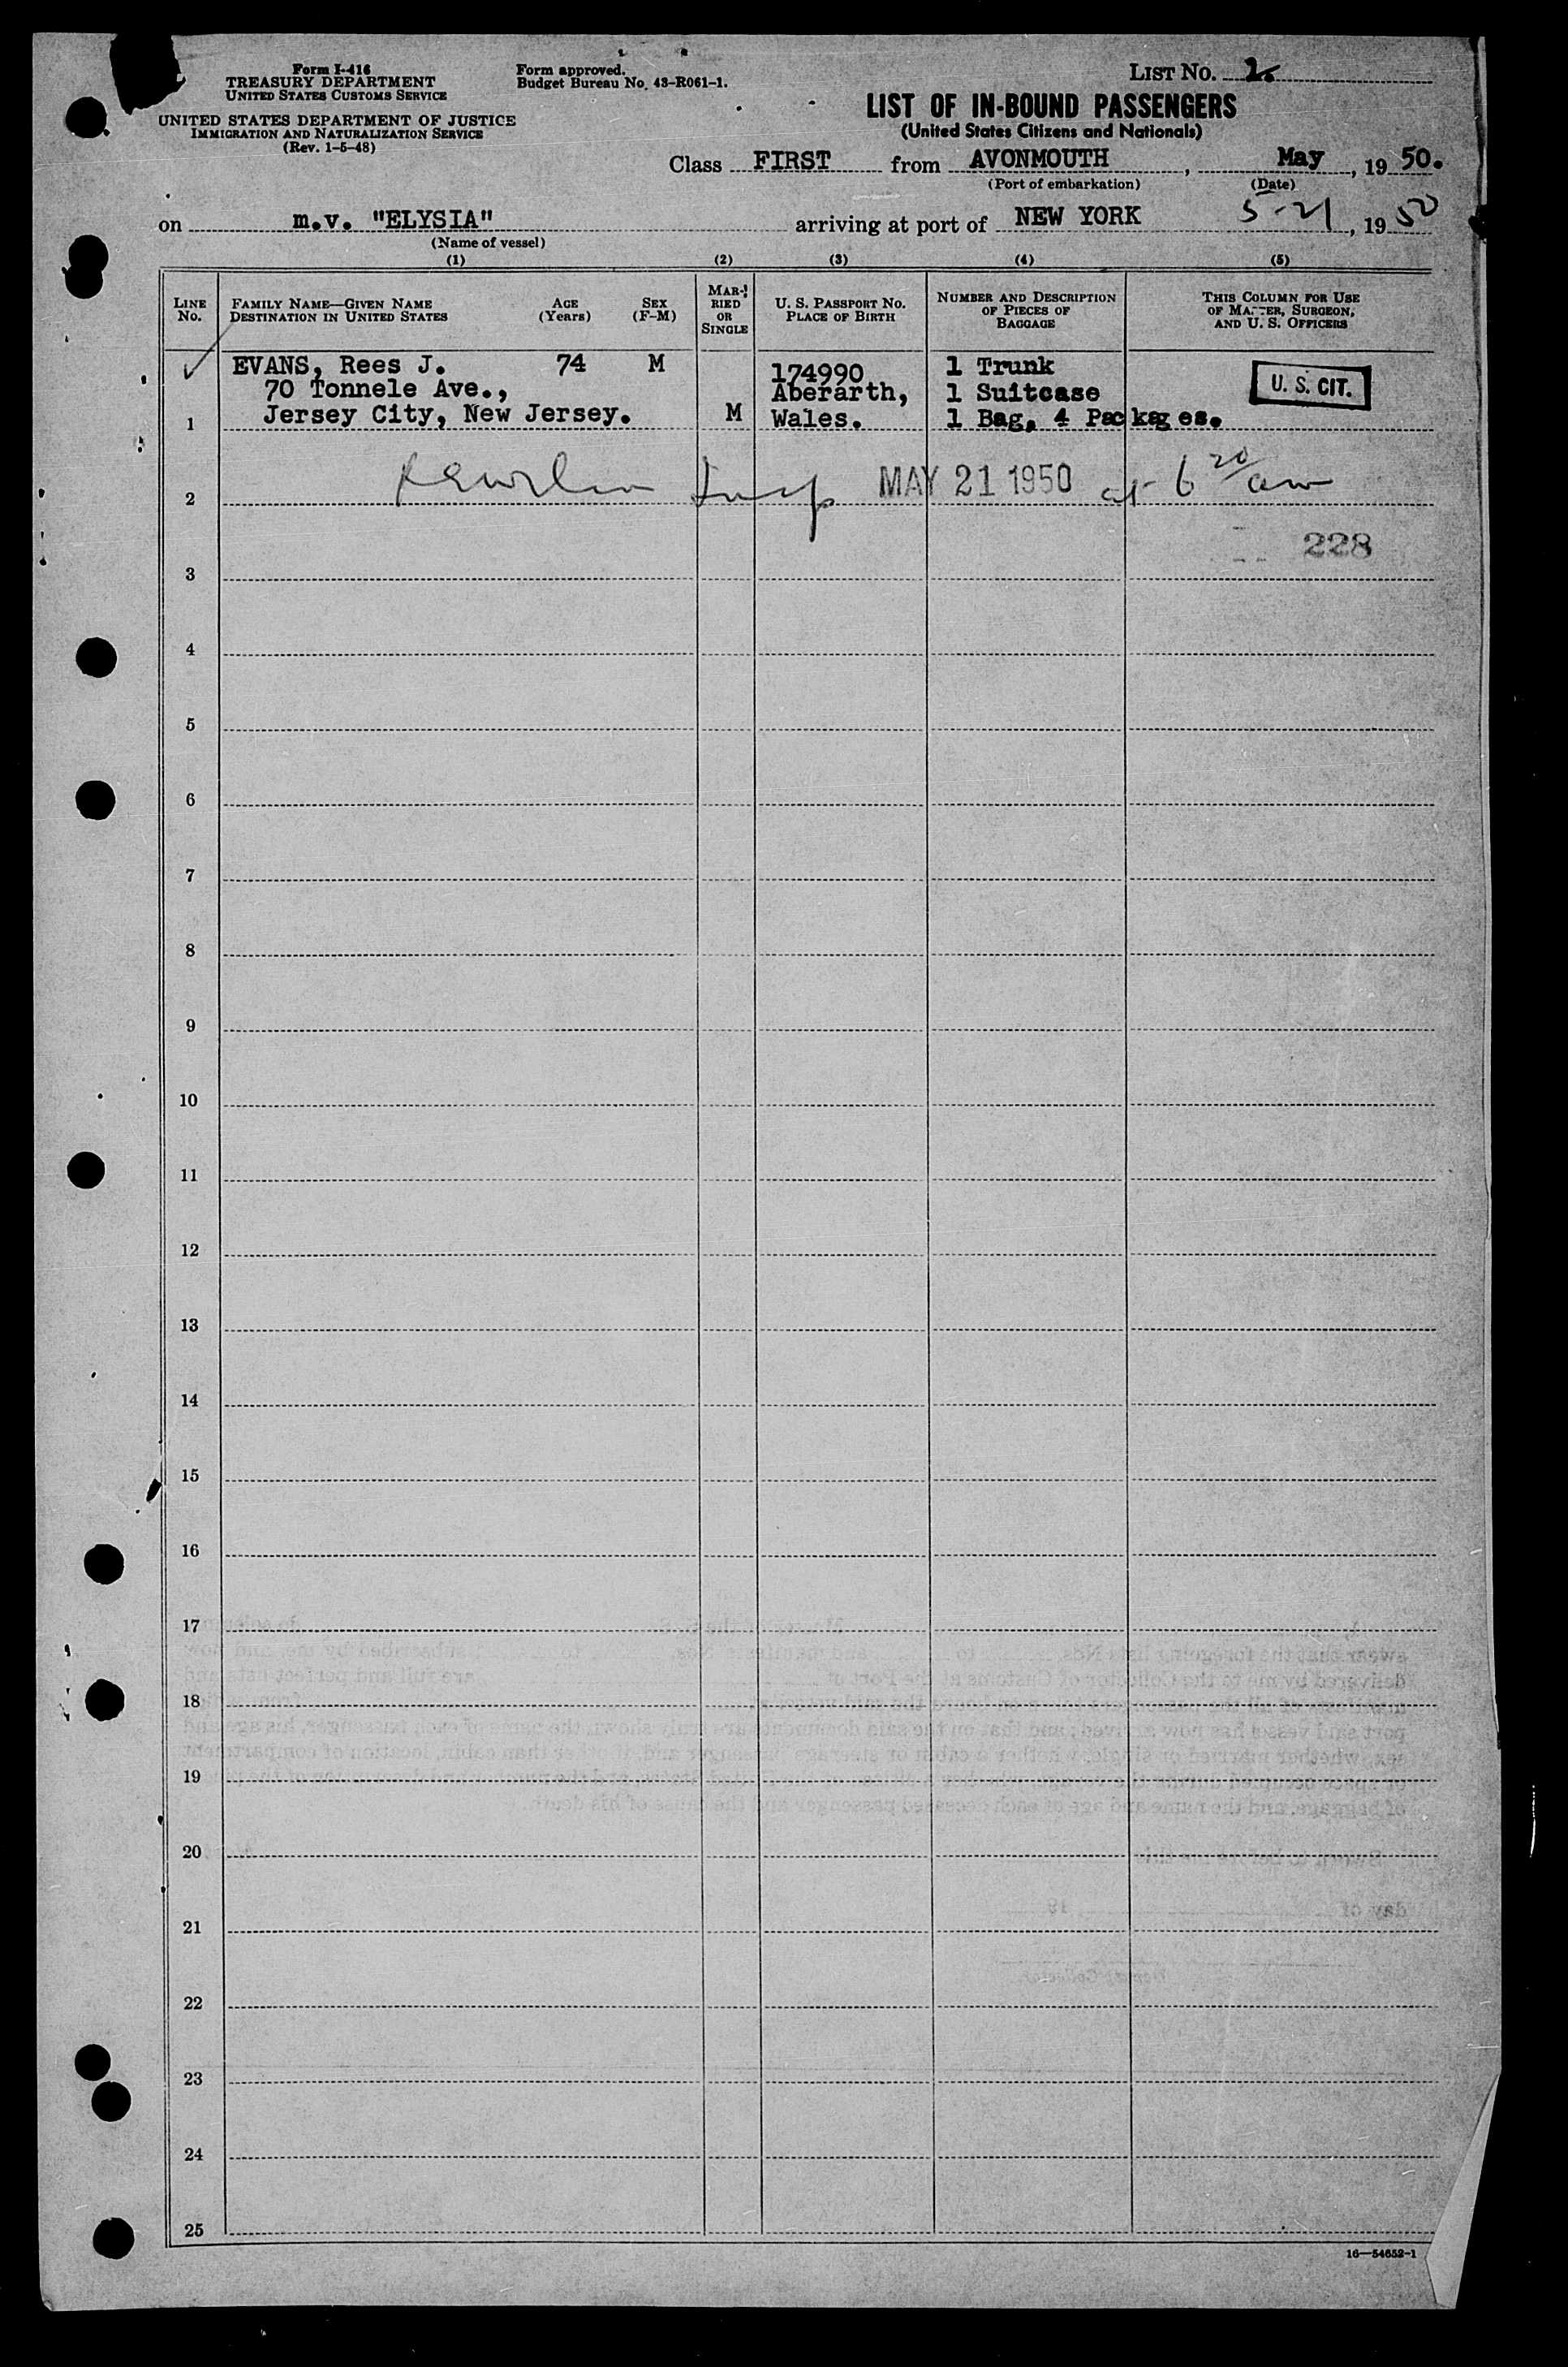 Form I-416
TREASURY DEPARTMENT
UNITED STATES CUSTOMS SERVICE
UNITED STATES DEPARTMENT OF JUSTICE
IMMIGRATION AND NATURALIZATION SERVICE
(Rev. 1-5-48)
Form approved.
Budget Bureau No. 43-R061-1.
LIST NO. 2.
LIST OF IN-BOUND PASSENGERS
(United States Citizens and Nationals)
Class FIRST from AVONMOUTH, May, 19 50.
(Port of embarkation) (Date)
on m.v. "ELYSIA" arriving at port of NEW YORK 5-21, 19 50
(Name of vessel)
(1) (2) (3) (4) (5)
LINE NO.
FAMILY NAME—GIVEN NAME
DESTINATION IN UNITED STATES
AGE (Years)
SEX (F-M)
MARRIED OR SINGLE
U. S. PASSPORT NO.
PLACE OF BIRTH
NUMBER AND DESCRIPTION OF PIECES OF BAGGAGE
THIS COLUMN FOR USE OF MASTER, SURGEON, AND U. S. OFFICERS
EVANS, Rees J. 74 M 174990 1 Trunk
70 Tonnele Ave., Aberarth, 1 Suitcase U. S. CIT.
1 Jersey City, New Jersey. M Wales. 1 Bag, 4 Packages.
2 MAY 21 1950 at 6 20/ am
228
3
4
5
6
7
8
9
10
11
12
13
14
15
16
17
18
19
20
21
22
23
24
25
16—54652-1